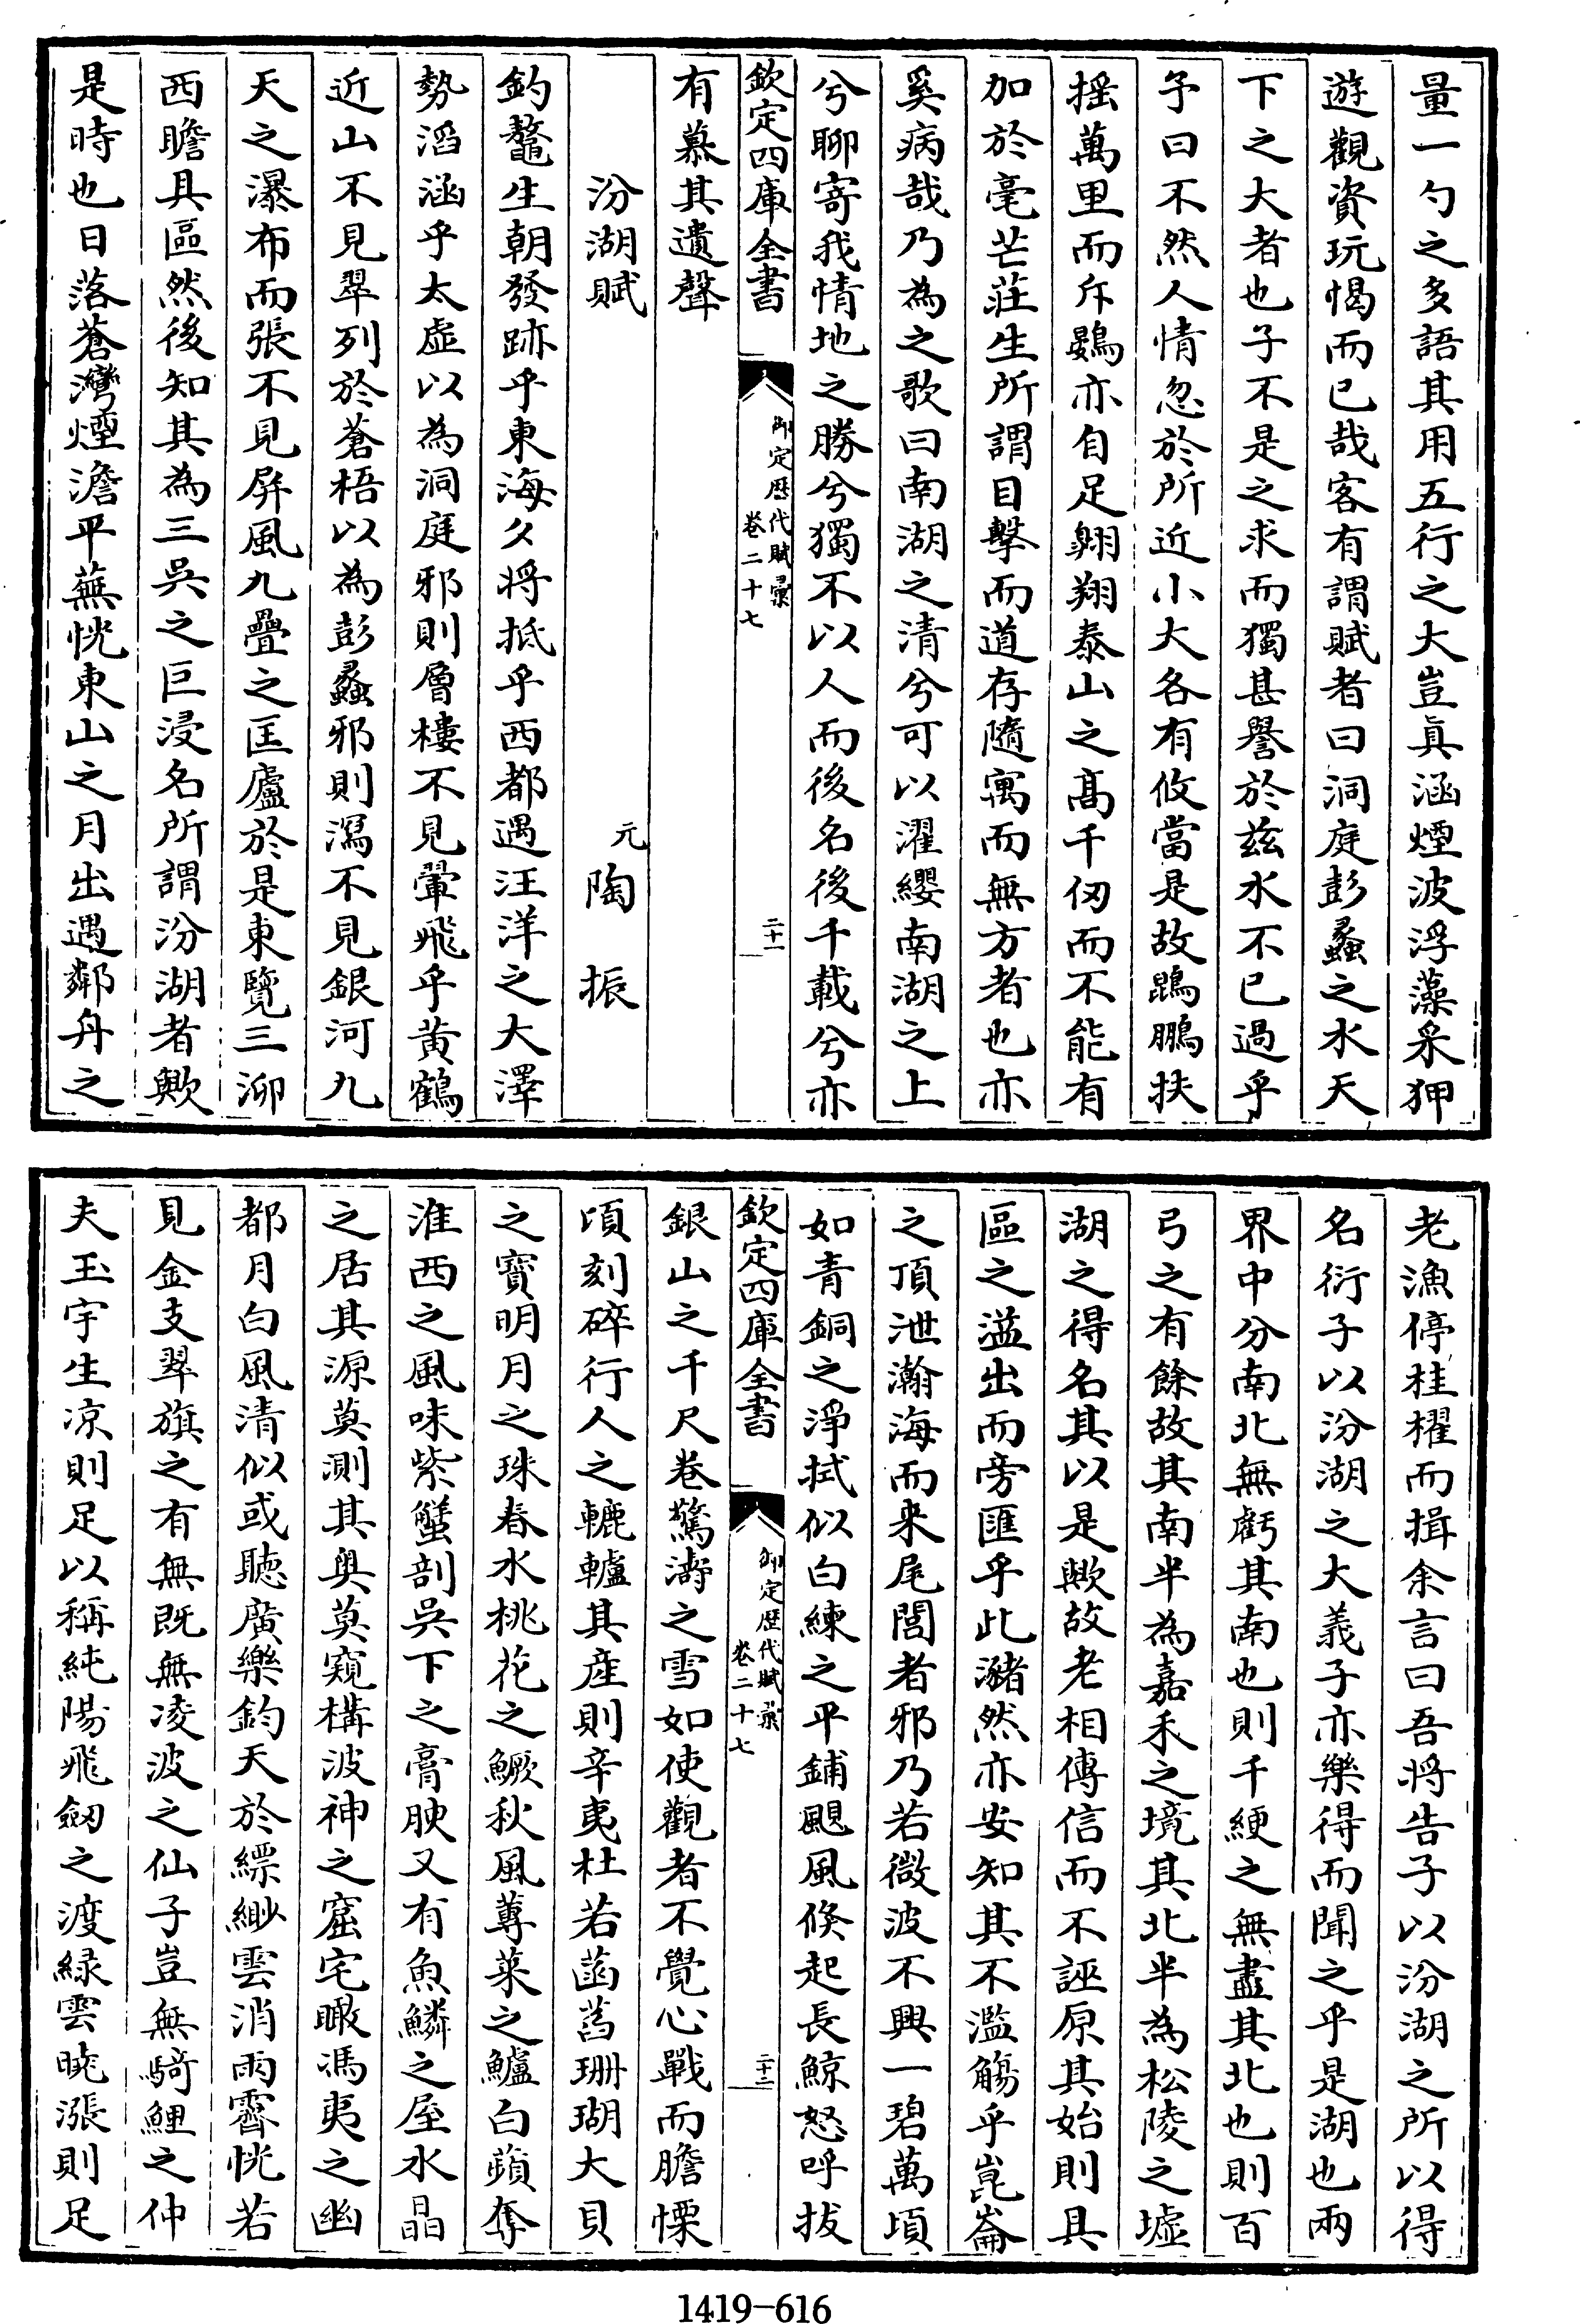 量一勺之多語其用五行之大豈真涵煙波浮藻采狎
遊觀資玩愒而已哉客有謂賦者曰洞庭彭蠡之水天
下之大者也子不是之求而獨甚譽於兹水不已過乎
予曰不然人情忽於所近小大各有攸當是故鵾鵬扶
摇萬里而斥鷃亦自足翱翔泰山之髙千仞而不能有
加於毫芒莊生所謂目擊而道存隨寓而無方者也亦
奚病哉乃為之歌曰南湖之清兮可以濯纓南湖之上
兮聊寄我情地之勝兮獨不以人而後名後千載兮亦
欽定四庫全書
御定歴代賦彙
卷二十七
二十一
有慕其遺聲
汾湖賦
元陶振
釣鼇生朝發跡乎東海夕將抵乎西都遇汪洋之大澤
勢滔涵乎太虚以為洞庭邪則層樓不見翬飛乎黄鶴
近山不見翠列於蒼梧以為彭蠡邪則瀉不見銀河九
天之瀑布而張不見屏風九疊之匡廬於是東覽三泖
西瞻具區然後知其為三吳之巨浸名所謂汾湖者歟
是時也日落蒼灣煙澹平蕪恍東山之月出遇鄰舟之
老漁停桂櫂而揖余言曰吾將告子以汾湖之所以得
名衍子以汾湖之大義子亦樂得而聞之乎是湖也兩
界中分南北無虧其南也則千綆之無盡其北也則百
弓之有餘故其南半為嘉禾之境其北半為松陵之墟
湖之得名其以是歟故老相傳信而不誣原其始則具
區之溢出而旁匯乎此瀦然亦安知其不濫觴乎崑崙
之頂泄瀚海而来尾閭者邪乃若微波不興一碧萬頃
如青銅之淨拭似白練之平鋪颶風倐起長鯨怒呼拔
欽定四庫全書
御定歴代賦彙
卷二十七
二十二
銀山之千尺卷驚濤之雪如使觀者不覺心戰而膽慄
頃刻碎行人之轆轤其産則辛夷杜若菡萏珊瑚大貝
之寳明月之珠春水桃花之鱖秋風蓴菜之鱸白蘋奪
淮西之風味紫蟹剖吳下之膏腴又有魚鱗之屋水晶
之居其源莫測其奥莫窺構波神之窟宅瞰馮夷之幽
都月白風清似或聽廣樂鈞天於縹緲雲消雨霽恍若
見金支翠旗之有無既無凌波之仙子豈無騎鯉之仲
夫玉宇生凉則足以稱純陽飛劔之渡緑雲曉漲則足
1419-616